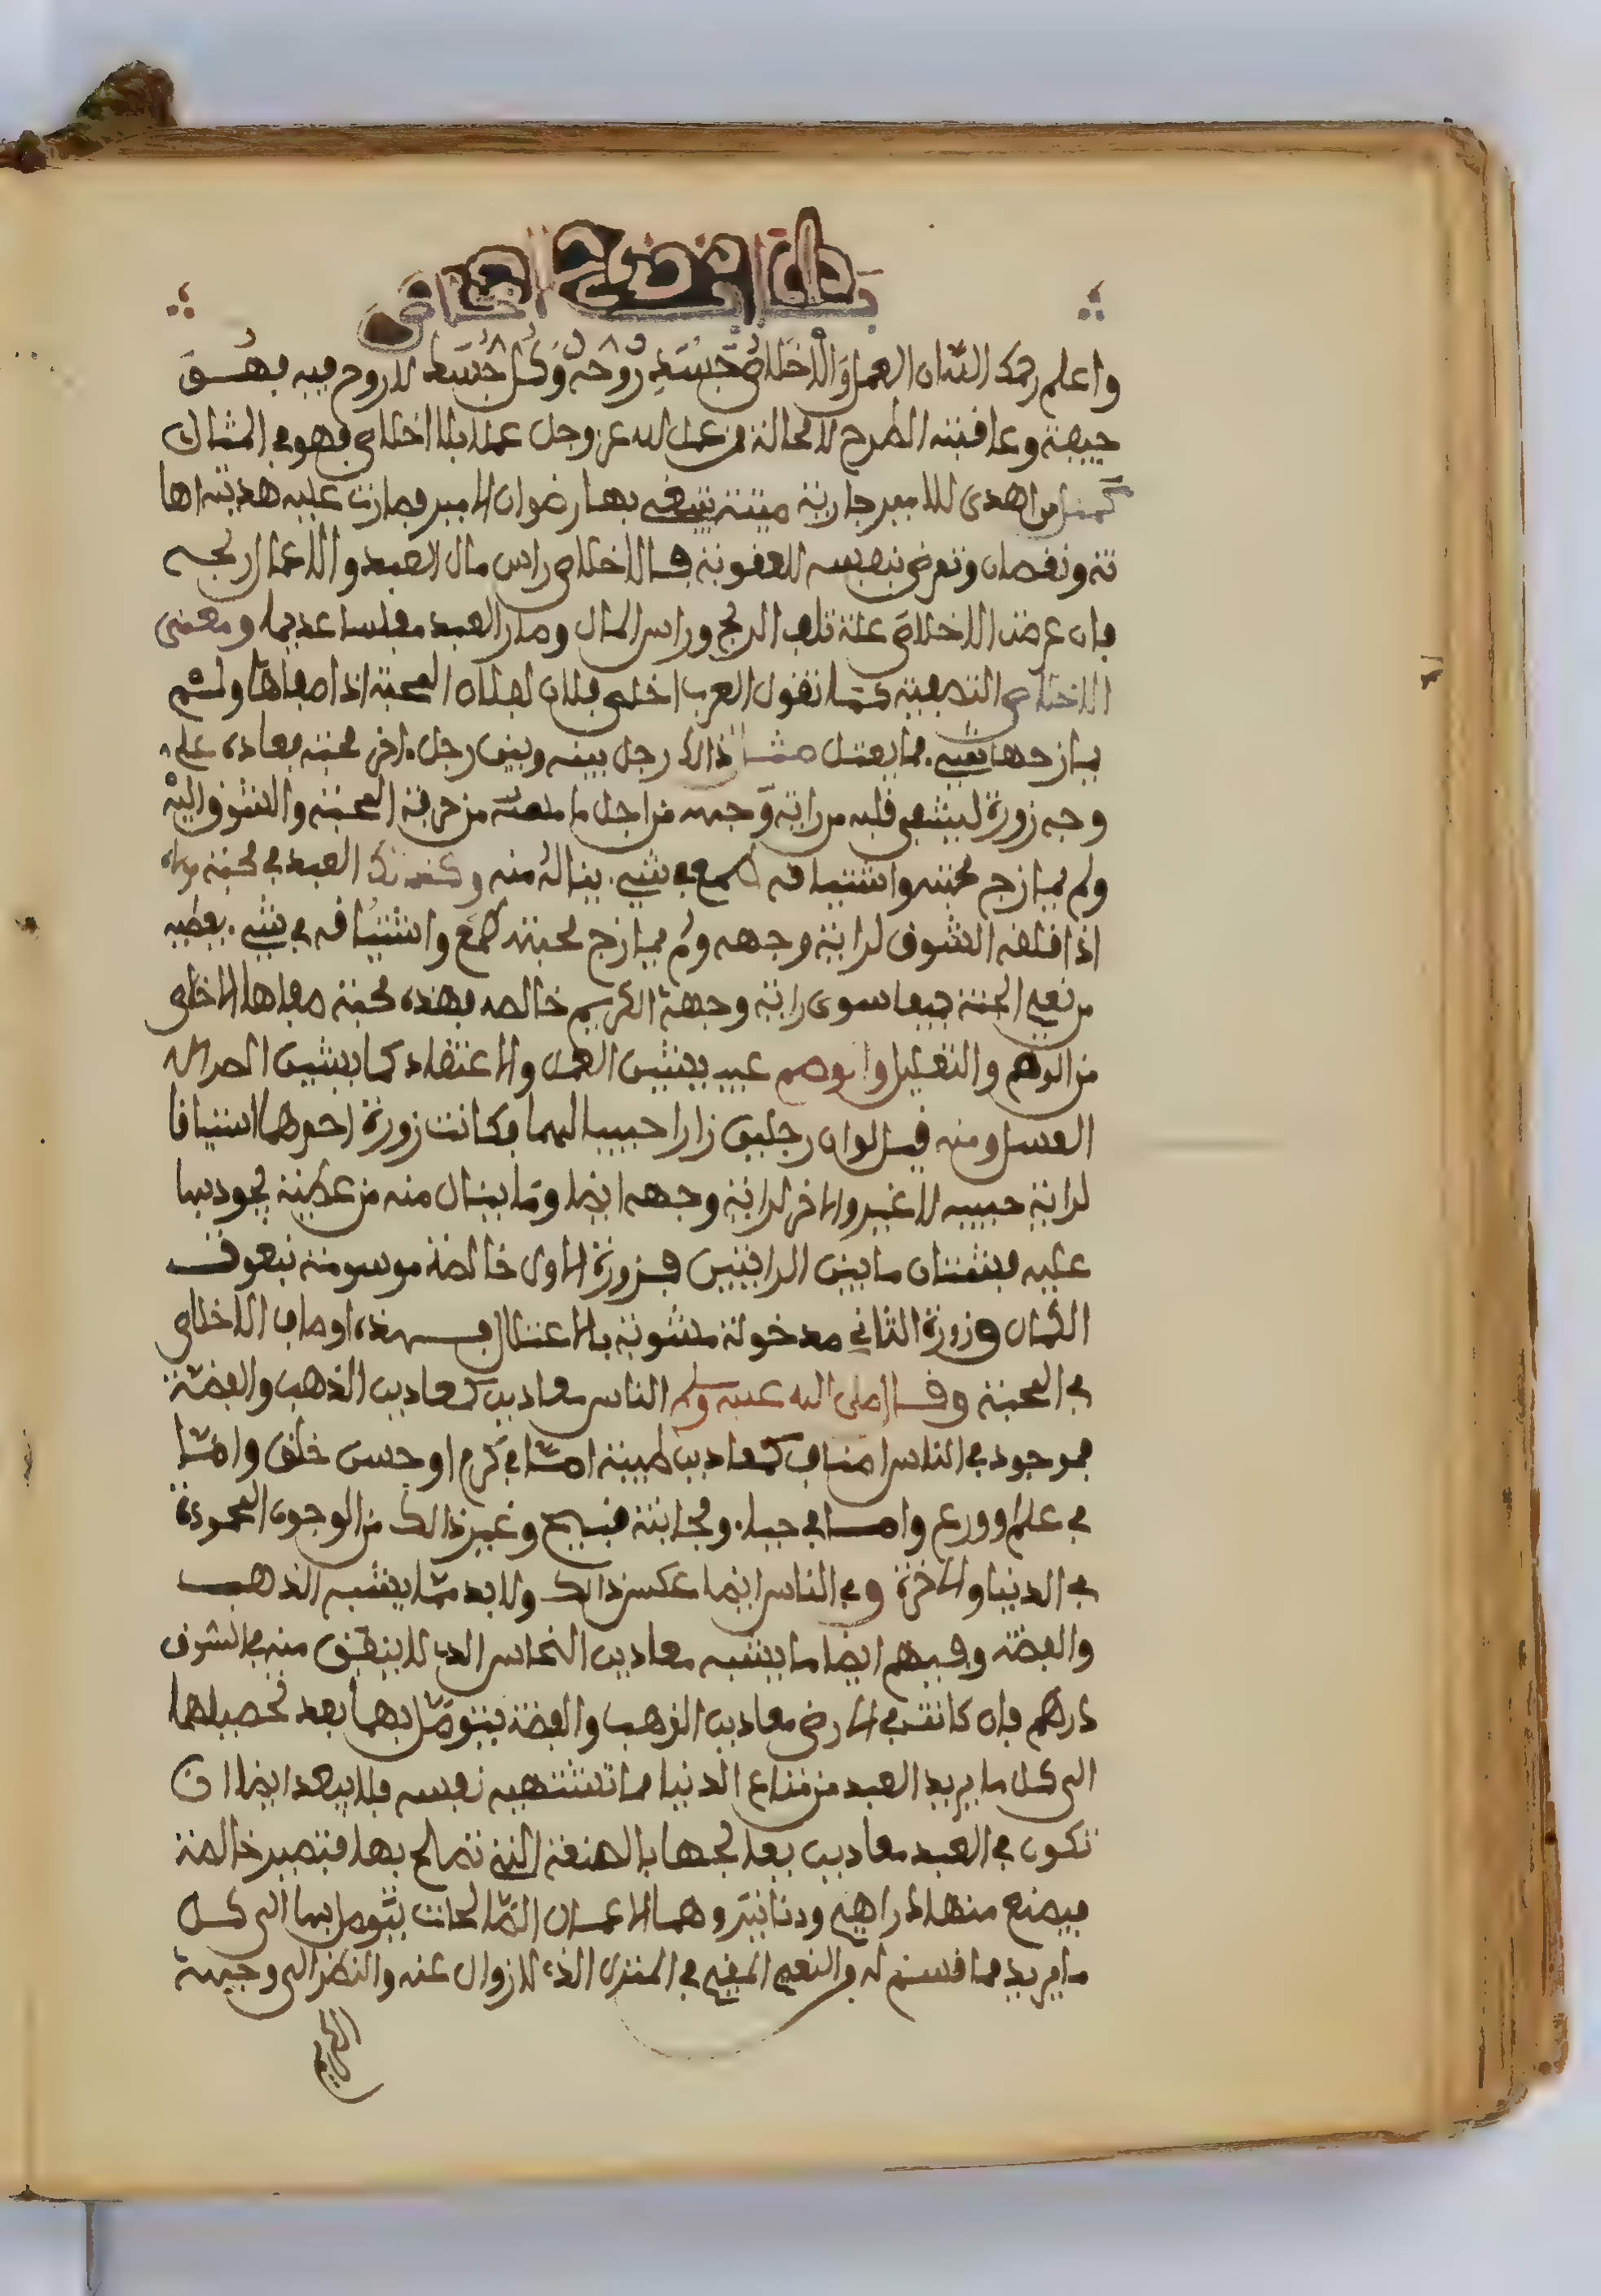 واعلم رحمك الله ان العمل والاخلاص جسد روحه وكل جسد لا روح فيه فهو
جيفة وعاقبته الطرح لا محالة من عمل لله عز وجل عملا بلا اخلاص فهو في المثال
كمثل من اهدى للامير جارية ميتة يبتغي بها رضوان الامير فصارت عليه هديته اها
نة ونقصان وتعرض بنفسه للعقوبة فالاخلاص راس مال العبد والاعمال ربحه
فان عرضت الاخلاص علة تلف الربح وراس المال وصار العبد مفلسا عديما ومعنى
الاخلاص التصفية كما تقول العرب اخلص فلان لفلان المحبة اذا صفاها ولم
يمازجها شيء مما يعتل مثال ذالك رجل بينه وبين رجل اخر محبة فعاده على
وجه زورة ليشفي قلبه من راية وجهه من اجل ما معه من حرفة المحبة والشوق اليه
ولم يمازج محبته واشتياقه طمع في شيء يناله منه وكذلك العبد في محبة مولاه
اذا اقلقه الشوق لراية وجهه ولم يمازج محبته طمع واشتياقه في شيء يعطيه
من نعيم الجنة جميعا سوى راية وجهه الكريم خالصه فهذه محبة صفاها الاخلاص
من الوهم والتعليل والوهم عيب يشين العمل والاعتقاد كما يشين
العسل ومنه قيل لو ان رجلين زارا حبيبا لهما فكانت زورة احدهما اشتياقا
لراية حبيبه لا غير والاخر لراية وجهه ايضا وما ينال منه من عطية يجود بها
عليه فشتان ما بين الزائرين فزورة الاول خالصة موسومة بنعوت
الكمال وزورة الثاني مدخولة مشوبة بالاعتلال فهذه اوصاف الاخلاص
في المحبة وقال صلى الله عليه وسلم الناس معادين كمعادين الذهب والفضة
فموجود في الناس اصناف كمعادين طيبة اما في كرم او حسن خلق واما
في علم او ورع واما في حياء ومجانبة قبيح وغير ذالك من الوجوه المحمودة
في الدنيا والاخرة وفي الناس ايضا عكس ذالك ولا بد مما يشبه الذهب
والفضة وفيهم ايضا ما يشبه معادين النحاس الذي لا ينطبق منه في الشرف
درهم فان كانت في الارض معادين الذهب والفضة يتوصل بهما بعد تحصيلهما
الى كل ما يريد العبد من متاع الدنيا مما تشتهيه نفسه فلا يبعد ايضا ان
تكون في العبد معادين يعالجها بالصنعة التي تصلح بها فتصير خالصة
فيصنع منها دراهم ودنانير وهما الاعمال الصالحات يتوصل بها الى كل
ما يريد مما قسم له من النعيم المقيم في المنزل الذي لا زوال عنه والنظر الى وجهه
الكريم